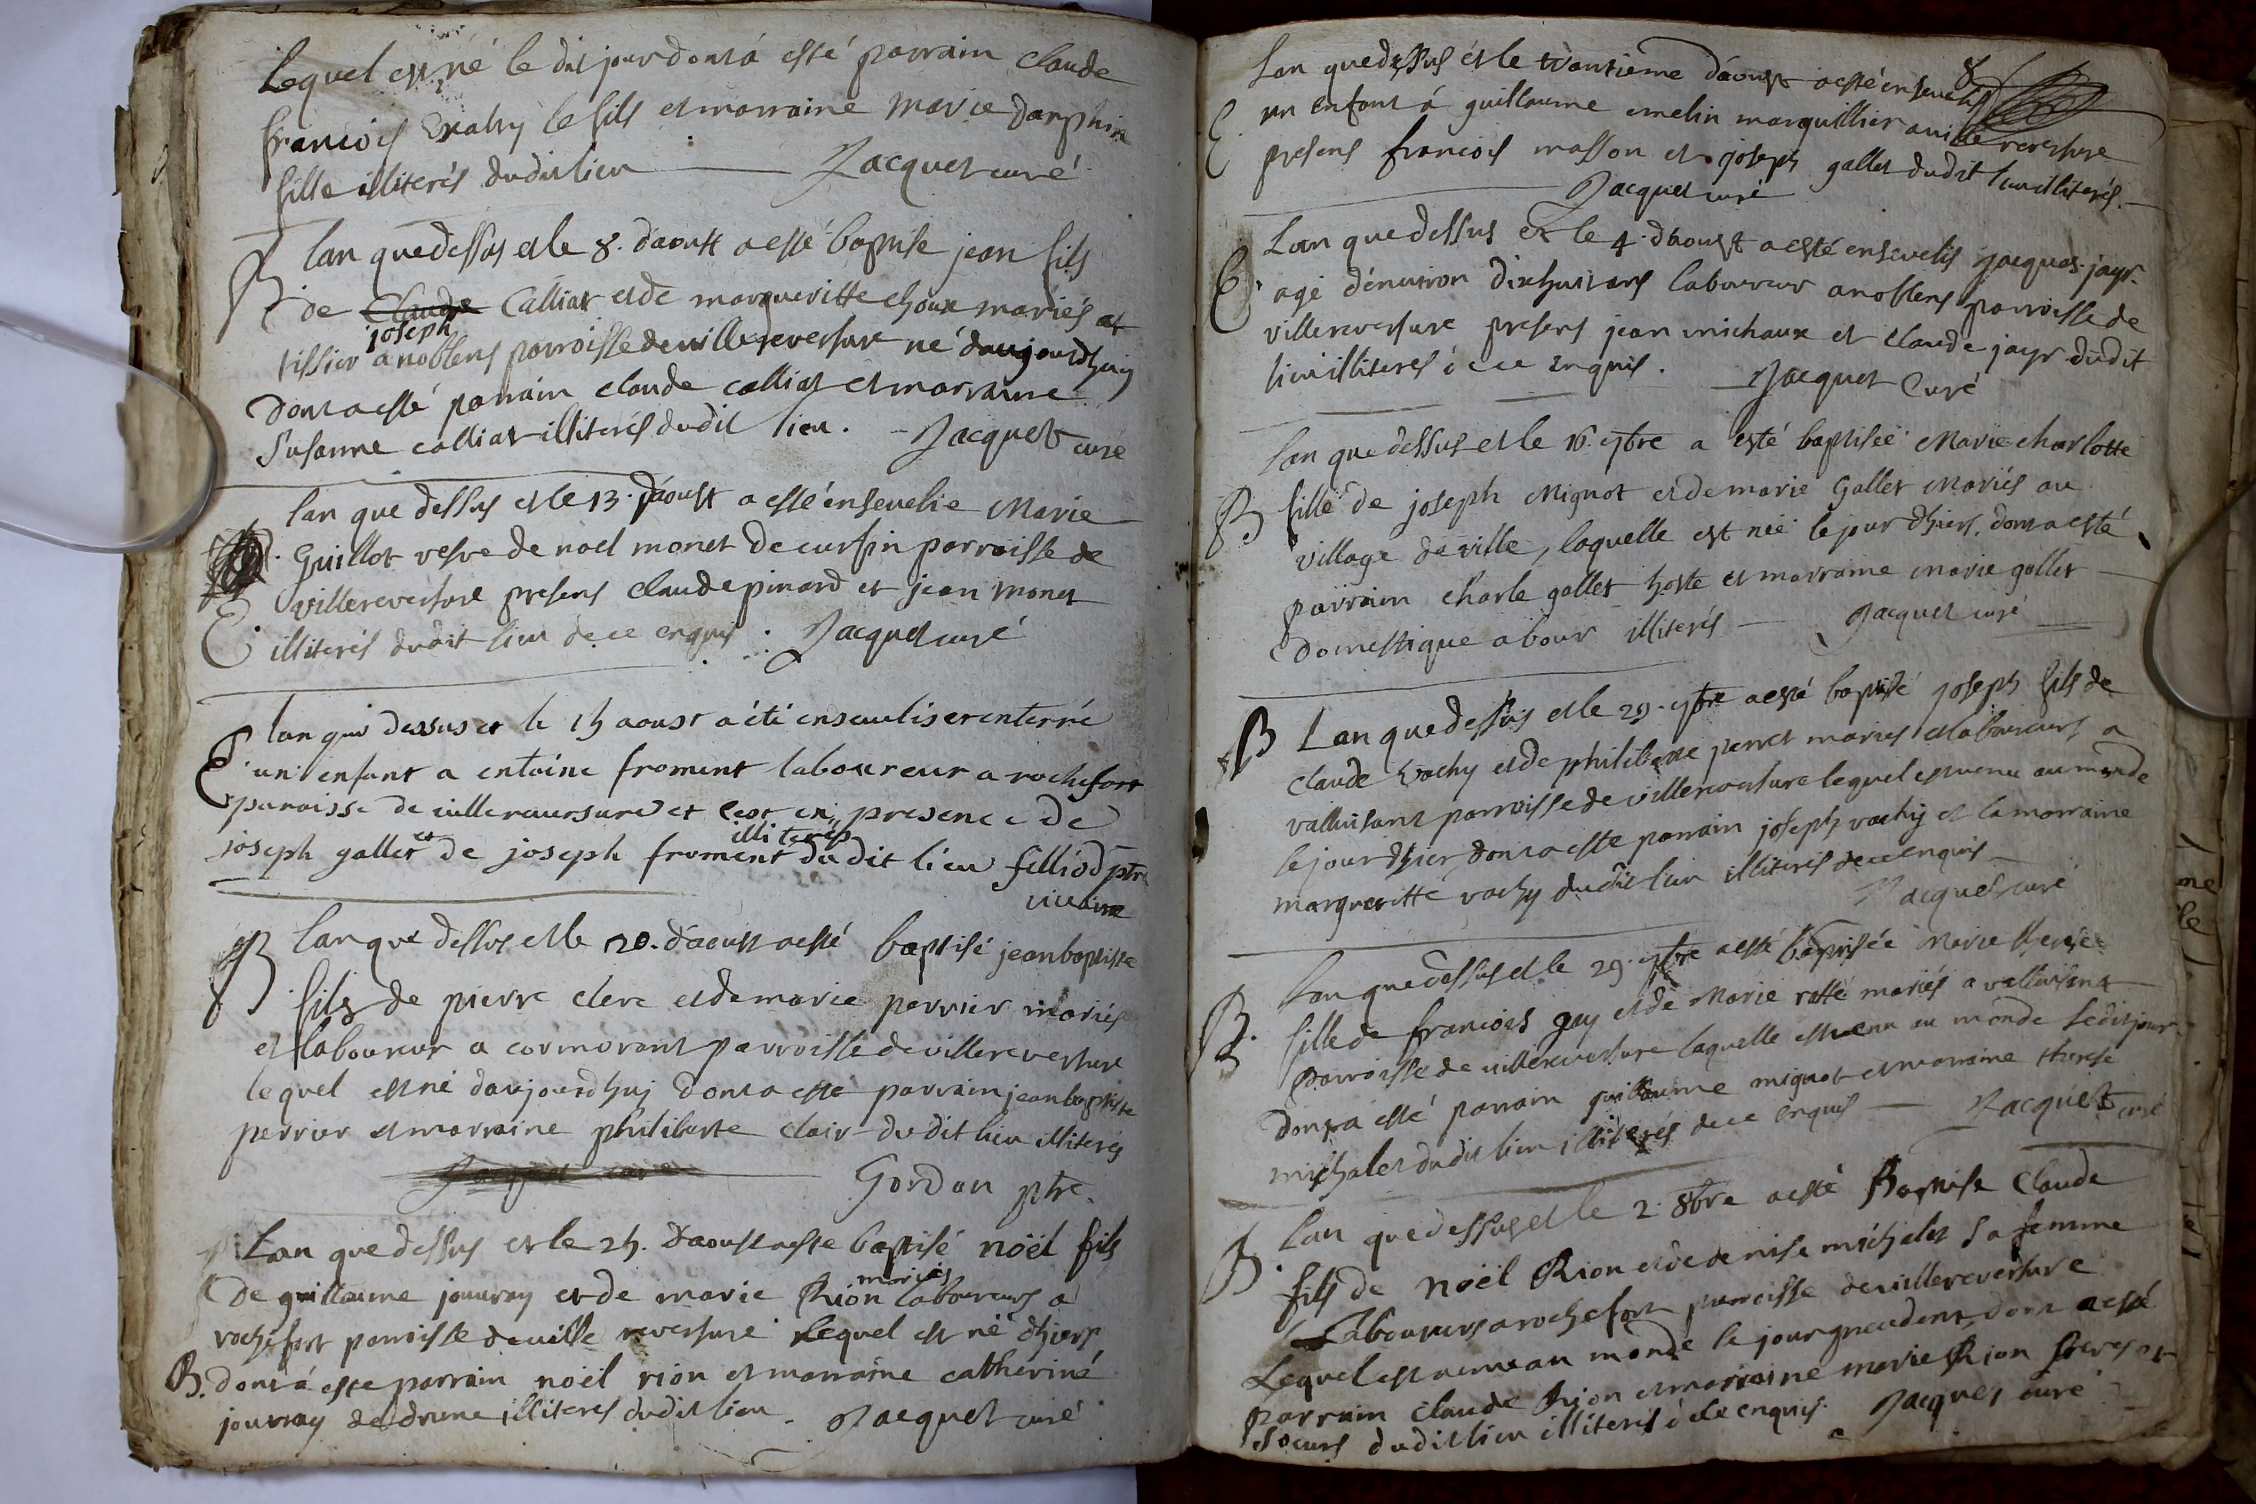 Lequel est né le dit jour dont á esté parrain claude
francois le fils et marraine marie
fille illiterés dudit lieu Jacquet curé
B lan que dessus et le 8. daoust a esté baptise jean fils
de Claude Calliat et de margueritte choux mariés et
joseph
tissier a noblens parroisse de villereversure né daujourdhuy
dont a esté parrain claude calliat et marraine
Susanne calliat illiterés dudit lieu. Jacquet curé
lan que dessus et le 13. daoust a esté ensevelie Marie
Guillot vefve de noel monet de curfin parroisse de
villereversure presens claude pinard et jean monet
E illiterés dudit lieu de ce enquis. Jacquet curé
E lan que dessus et le 15 aoust a été enseulis et enterré
un enfant a entoine froment laboureur a rochefort
paroisse de villereuersure et cest en presence de
illiterés
joseph gallet et de joseph froment du dit lieu filliod ptre
vicaire
B lan que dessus et le 20. daoust a esté baptisé jean baptiste
fils de pierre clerc et de marie perrier mariés
et laboureur a cormorant parroisse de villereversure
lequel est né daujourdhuy dont a esté parrain jean baptiste
perrier et marraine philiberte clair dudit lieu illiterés
Gordan ptre.
Lan que dessus et le 25. daoust a este baptisé noël fils
mariés
De guillaume jouuray et de marie Rion laboureurs a
rochefort parroisse de ville reversure Lequel est né dhiers
B. dont á este parrain noël rion et marraine catherine
jouvray de drune illiteres dudit lieu. Jacquet curé
8
Lan que dessus et le trantieme daoust a esté ensevelis
E. un enfant á guillaume emelin marguillier a villereversure
presens francois masson et joseph gallet dudit lieu illiterés.
Jacquet curé
Lan que dessus et le 4. daoust a esté ensevelis jacques jayr
E. agé dénuiron dixhuit ans laboureur a noblens parroisse de
villereversure presens jean michaux et claude jayr dudit
lieu illiteres de ce enquis. Jacquet Curé
Lan que dessus et le 16. 7bre a esté baptisée Marie charlotte
B fille de joseph Mignot et de marie Gallet Mariés au
village de ville, laquelle est née le jour dhiers. dont a esté
parrain charle gallet hoste et marraine marie gallet
Domestique a bour illiterés Jacquet curé
B Lan que dessus et le 29. 7bre a esté baptisé joseph fils de
claude vachy et de philiberte perret mariés et laboureurs a
valluisant parroisse de villereversure lequel est venu au monde
le jour dhier dont a este parrain joseph vachy et la marraine
margueritte vachy dudit lieu illiterés de ce enquis
Jacquet curé
Lan que dessus et le 29. 7bre a esté baptisée Marie therese
B. fille de francois guy et de Marie ratte mariés a valluisant
parroisse de villereversure laquelle est venu au monde ledit jour
dont a esté parrain guillaume mignot et marraine therese
michalet dudit lieu illiterés de ce enquis Jacquet curé
Lan que dessus et le 2. 8bre a esté Baptisé Claude
B. fils de Noël Rion et de denise michalet sa femme
Laboureurs a rochefort parroisse de villereversure
Lequel est venu au monde le jour precedent dont a esté
parrain claude Rion et marraine marie Rion freres et
soeurs dudit lieu illiterés de ce enquis. Jacquet curé